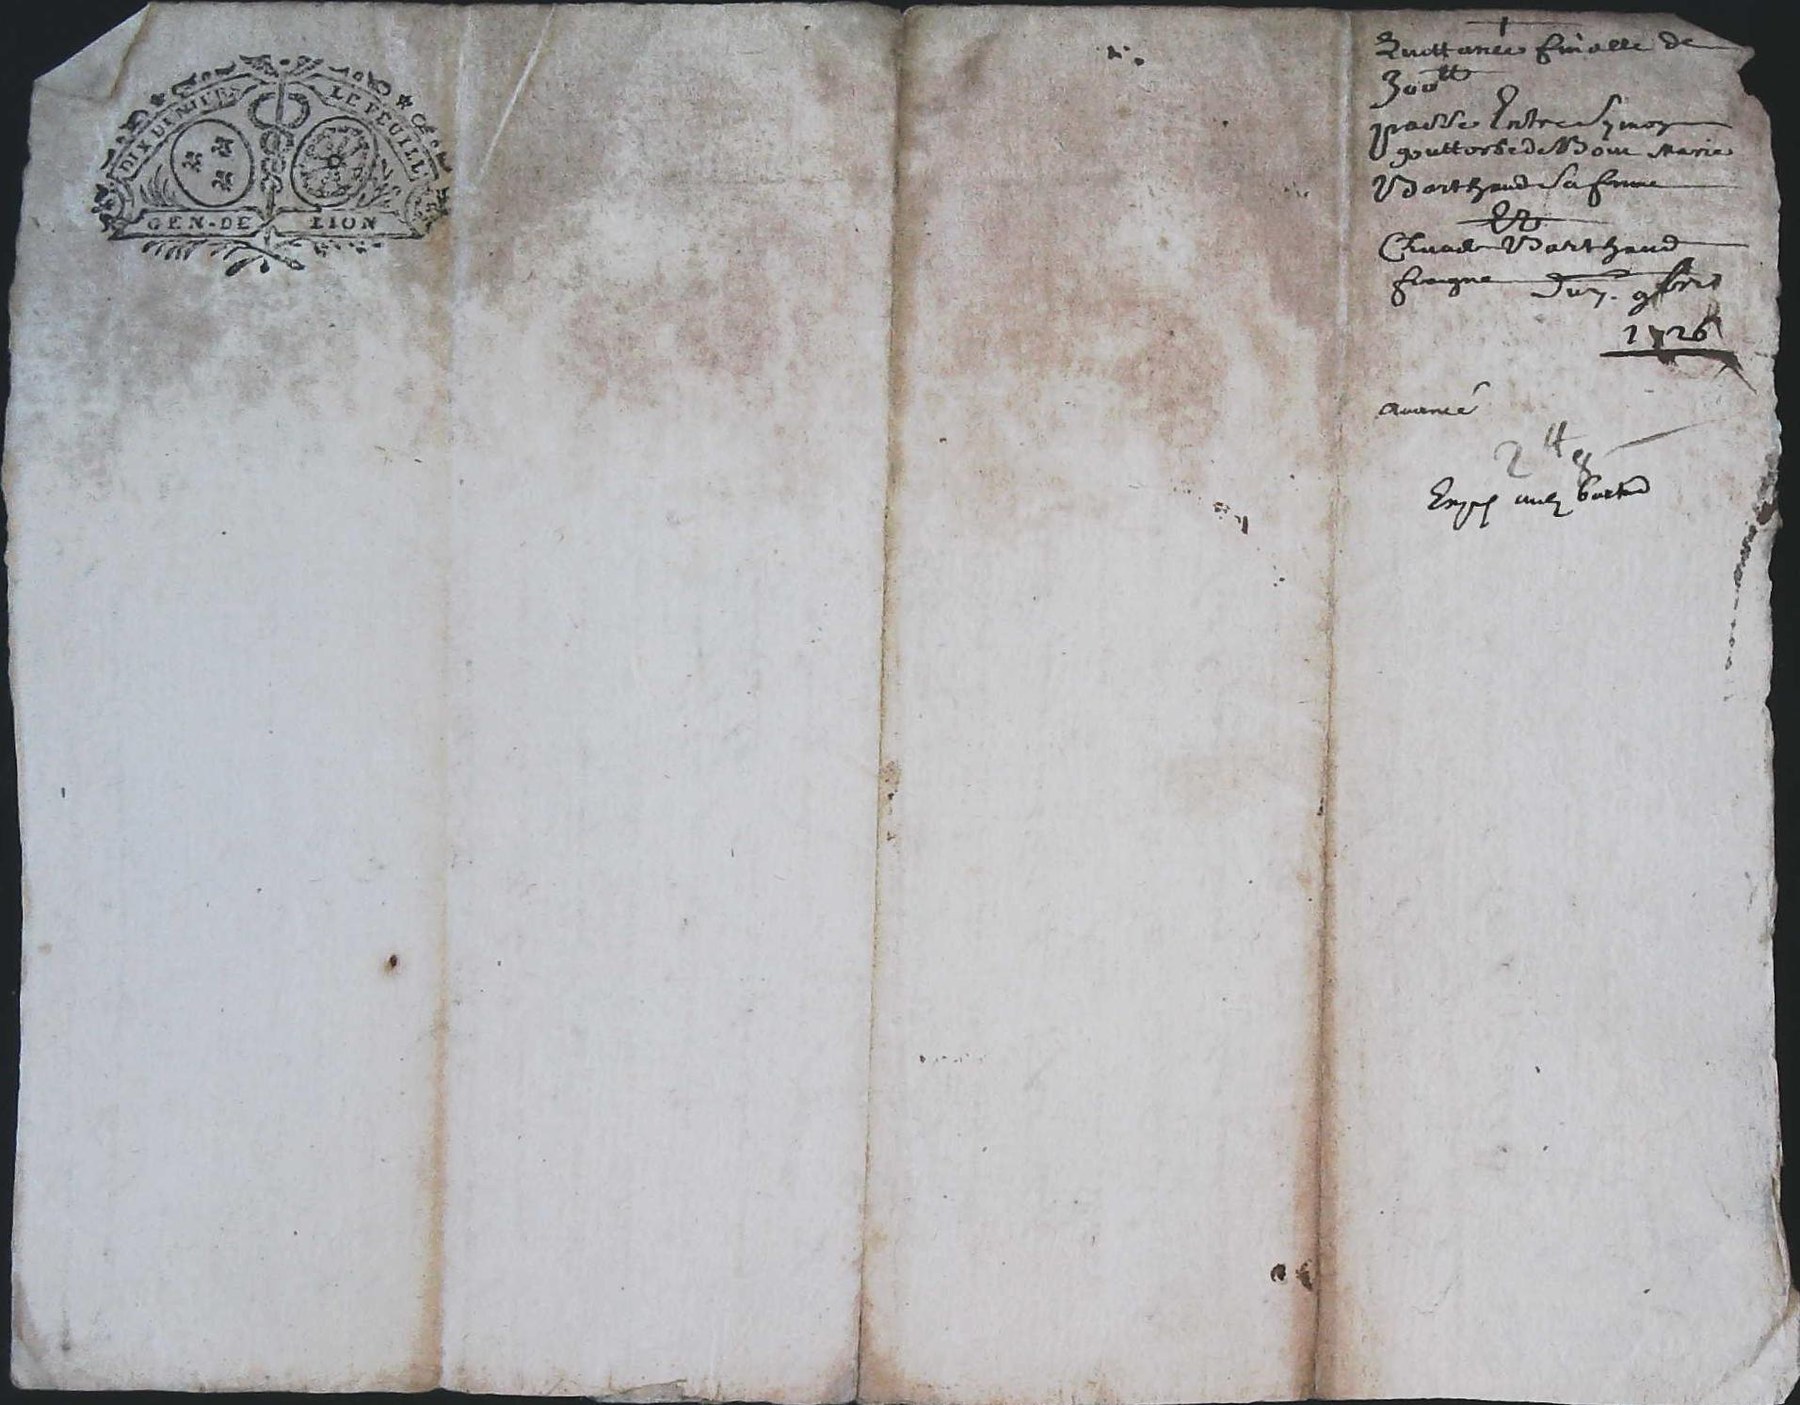 DIX DENIERS LE FEUILL
GEN-DE LION
Quottance finalle de
300ᵗᵗ
passé Entre Symon
gouttorbe de Marie
Barthaud sa feme
Et
Claude Barthaud
Du 7. 9bre
1726
avancé
2ᵗᵗ 8